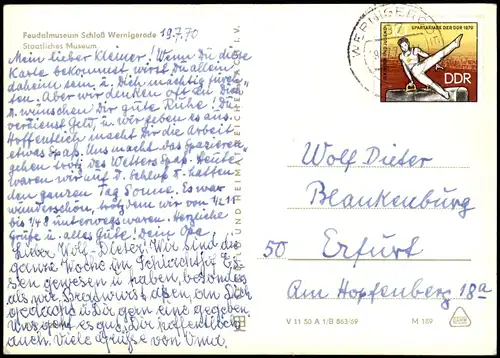 Feudalmuseum Schloß Wernigerode
Staatliches Museum
19.7.70
Mein lieber Kleiner! Wenn Du diese
Karte bekommst wirst Du allein
daheim sein u. Dich mächtig fürch-
ten. Aber wir denken oft an Dich
u. wünschen Dir gute Ruhe! Du
verdienst Geld, u. wir geben es aus.
Hoffentlich macht Dir die Arbeit
etwas Spaß. Uns macht das Spazieren-
gehen trotz des Wetters Spaß. Heute
waren wir auf d. Schloß u. hatten
den ganzen Tag Sonne. Es war
wunderschön, trotzdem wir von 1/2 11
bis 1/4 8 unterwegs waren. Herzliche
Grüße u. alles Gute! Dein Opa!
Lieber Wolf-Dieter! Wir sind die
ganze Woche im Schlachthof Es-
sen gewesen u. haben, besonders
als wir Bratwurst aßen, an
gedacht u. Dir gern eine gegeben.
Uns geht es gut. Dir hoffentlich
auch. Viele Grüße von Oma.
WERNIGERODE
SPARTAKIADE DER DDR 1970
DDR
Wolf Dieter
Blankenburg
50 Erfurt
Am Hopfenberg 18a
V 11 50 A 1/B 863/69
M 189